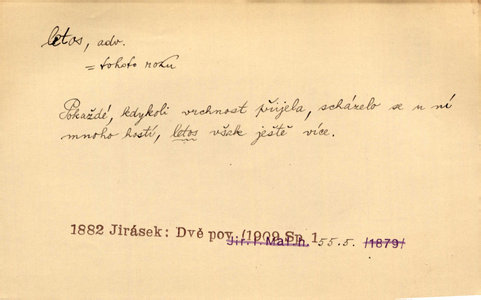 letos, adv.
= tohoto roku
Pokaždé, kdykoli vrchnost přijela, scházelo se u ní
mnoho hostí, letos však ještě více.
1882 Jirásek: Dvě pov. /1909 Sp 1
55.5. /1879/